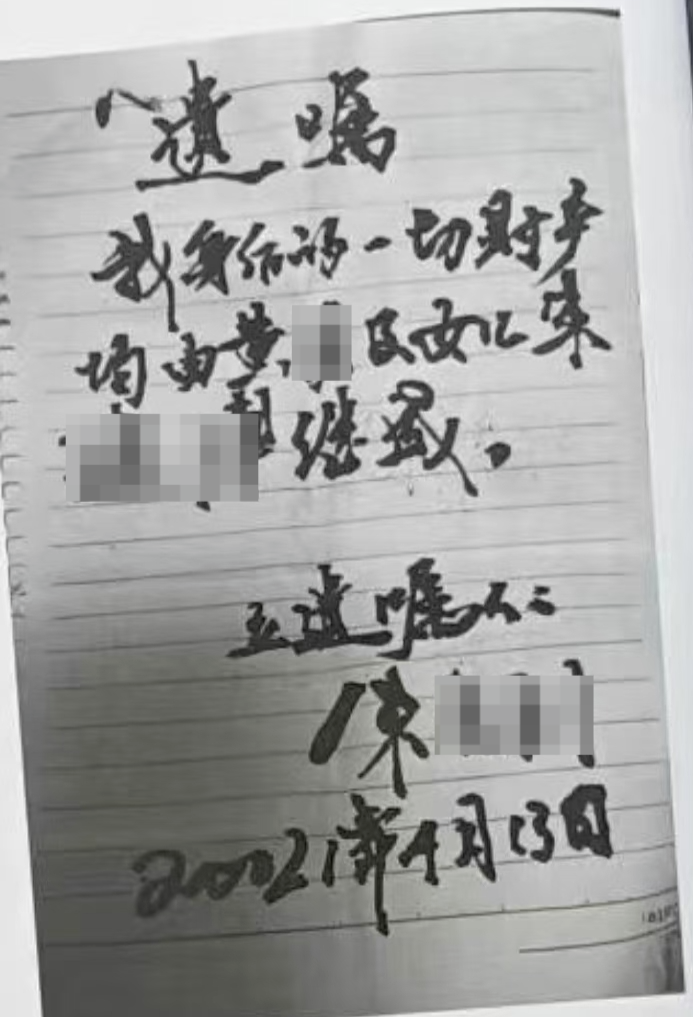 遗嘱
我身后的一切财产
均由黄 及女儿朱
继承。
立遗嘱人:
朱
20021年4月13日